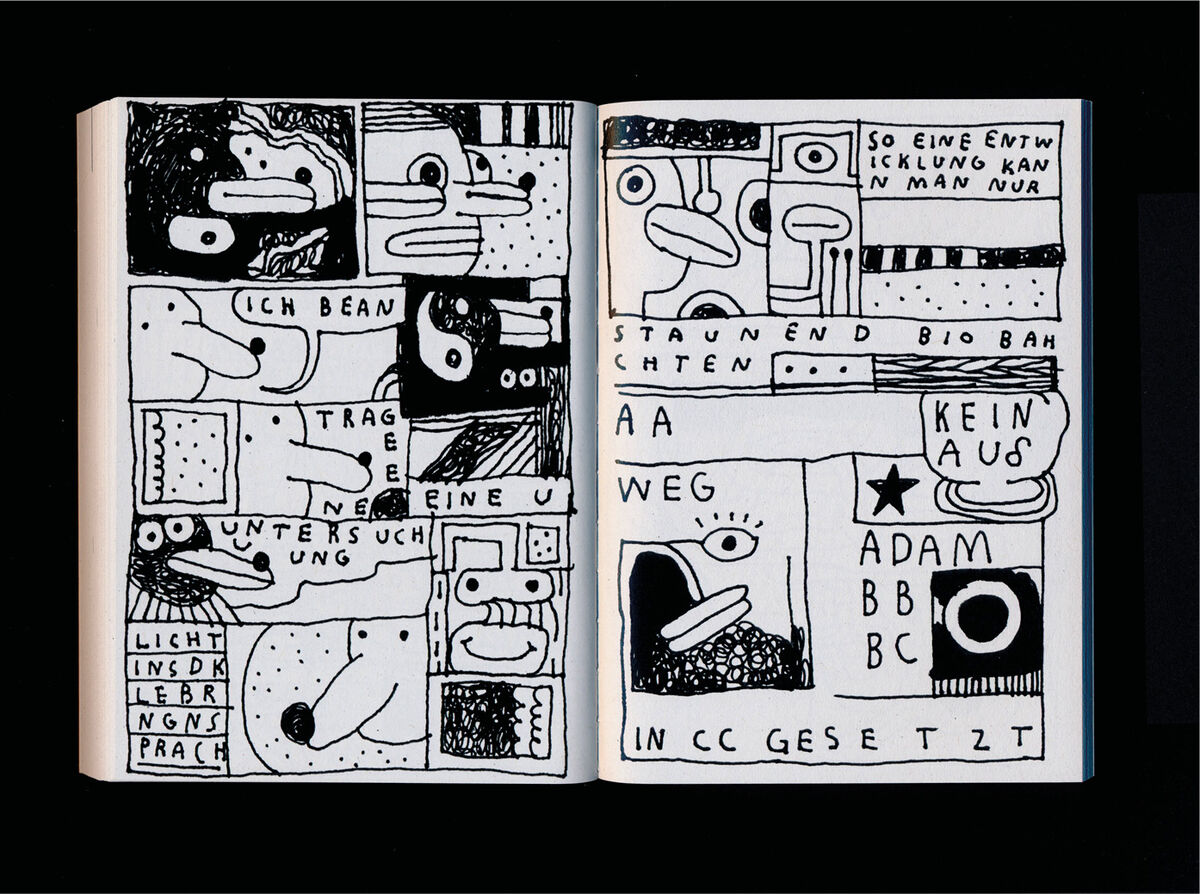 ICH BEAN
TRAG
E
E
NE
EINE U
UNTERSUCH
UNG
LICHT
INSDK
LEBR
NGNS
PRACH
SO EINE ENTW
ICKLUNG KAN
N MAN NUR
STAUNEND BIOBAH
CHTEN
AA
KEIN
AUS
WEG
ADAM
BB
BC
IN CC GESETZT